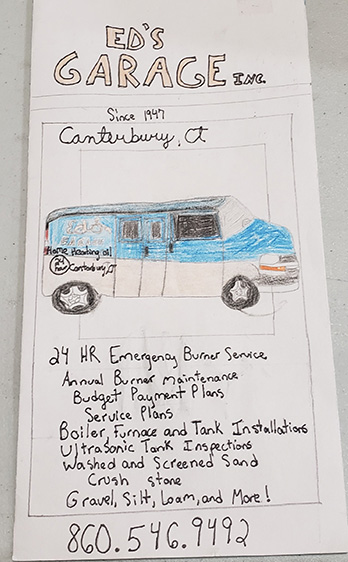 ED'S
GARAGE INC.
Since 1947
Canterbury, Ct
Home Heating oil
24 hour Canterbury, CT
24 HR Emergency Burner Service
Annual Burner maintenance
Budget Payment Plans
Service Plans
Boiler, Furnace and Tank Installations
Ultrasonic Tank Inspections
Washed and Screened Sand
Crush stone
Gravel, Silt, Loam, and More!
860.546.9492